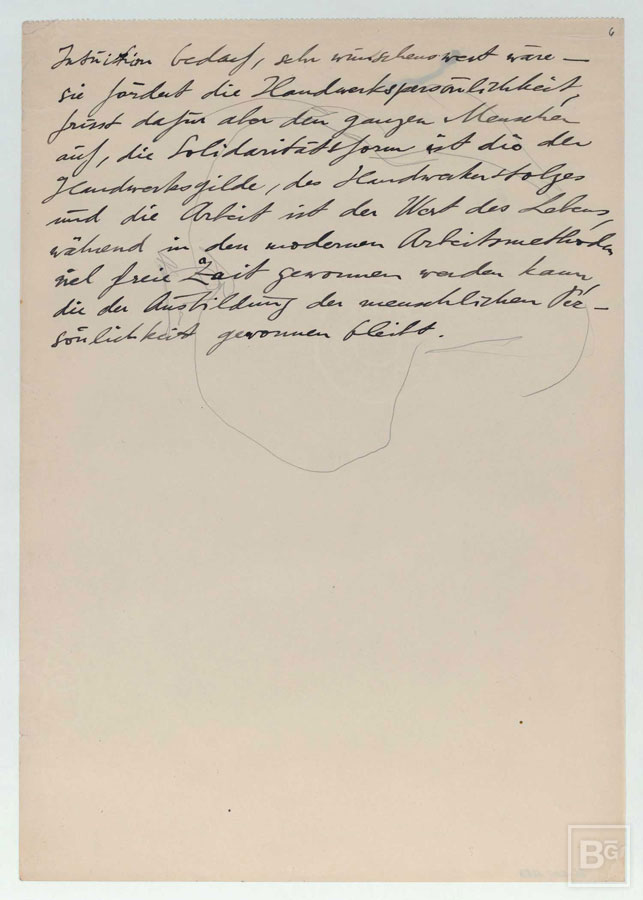 6
Intuition bedarf, sehr wünschenswert wäre –
sie fördert die Handwerkspersönlichkeit,
frisst dafür aber den ganzen Menschen
auf, die Solidaritätsform ist die der
Handwerksgilde, des Handwerkerstolzes
und die Arbeit ist der Wert des Lebens,
während in den modernen Arbeitsmethoden
viel freie Zeit gewonnen werden kann,
die der Ausbildung der menschlichen Per–
sönlichkeit gewonnen bleibt.
BG